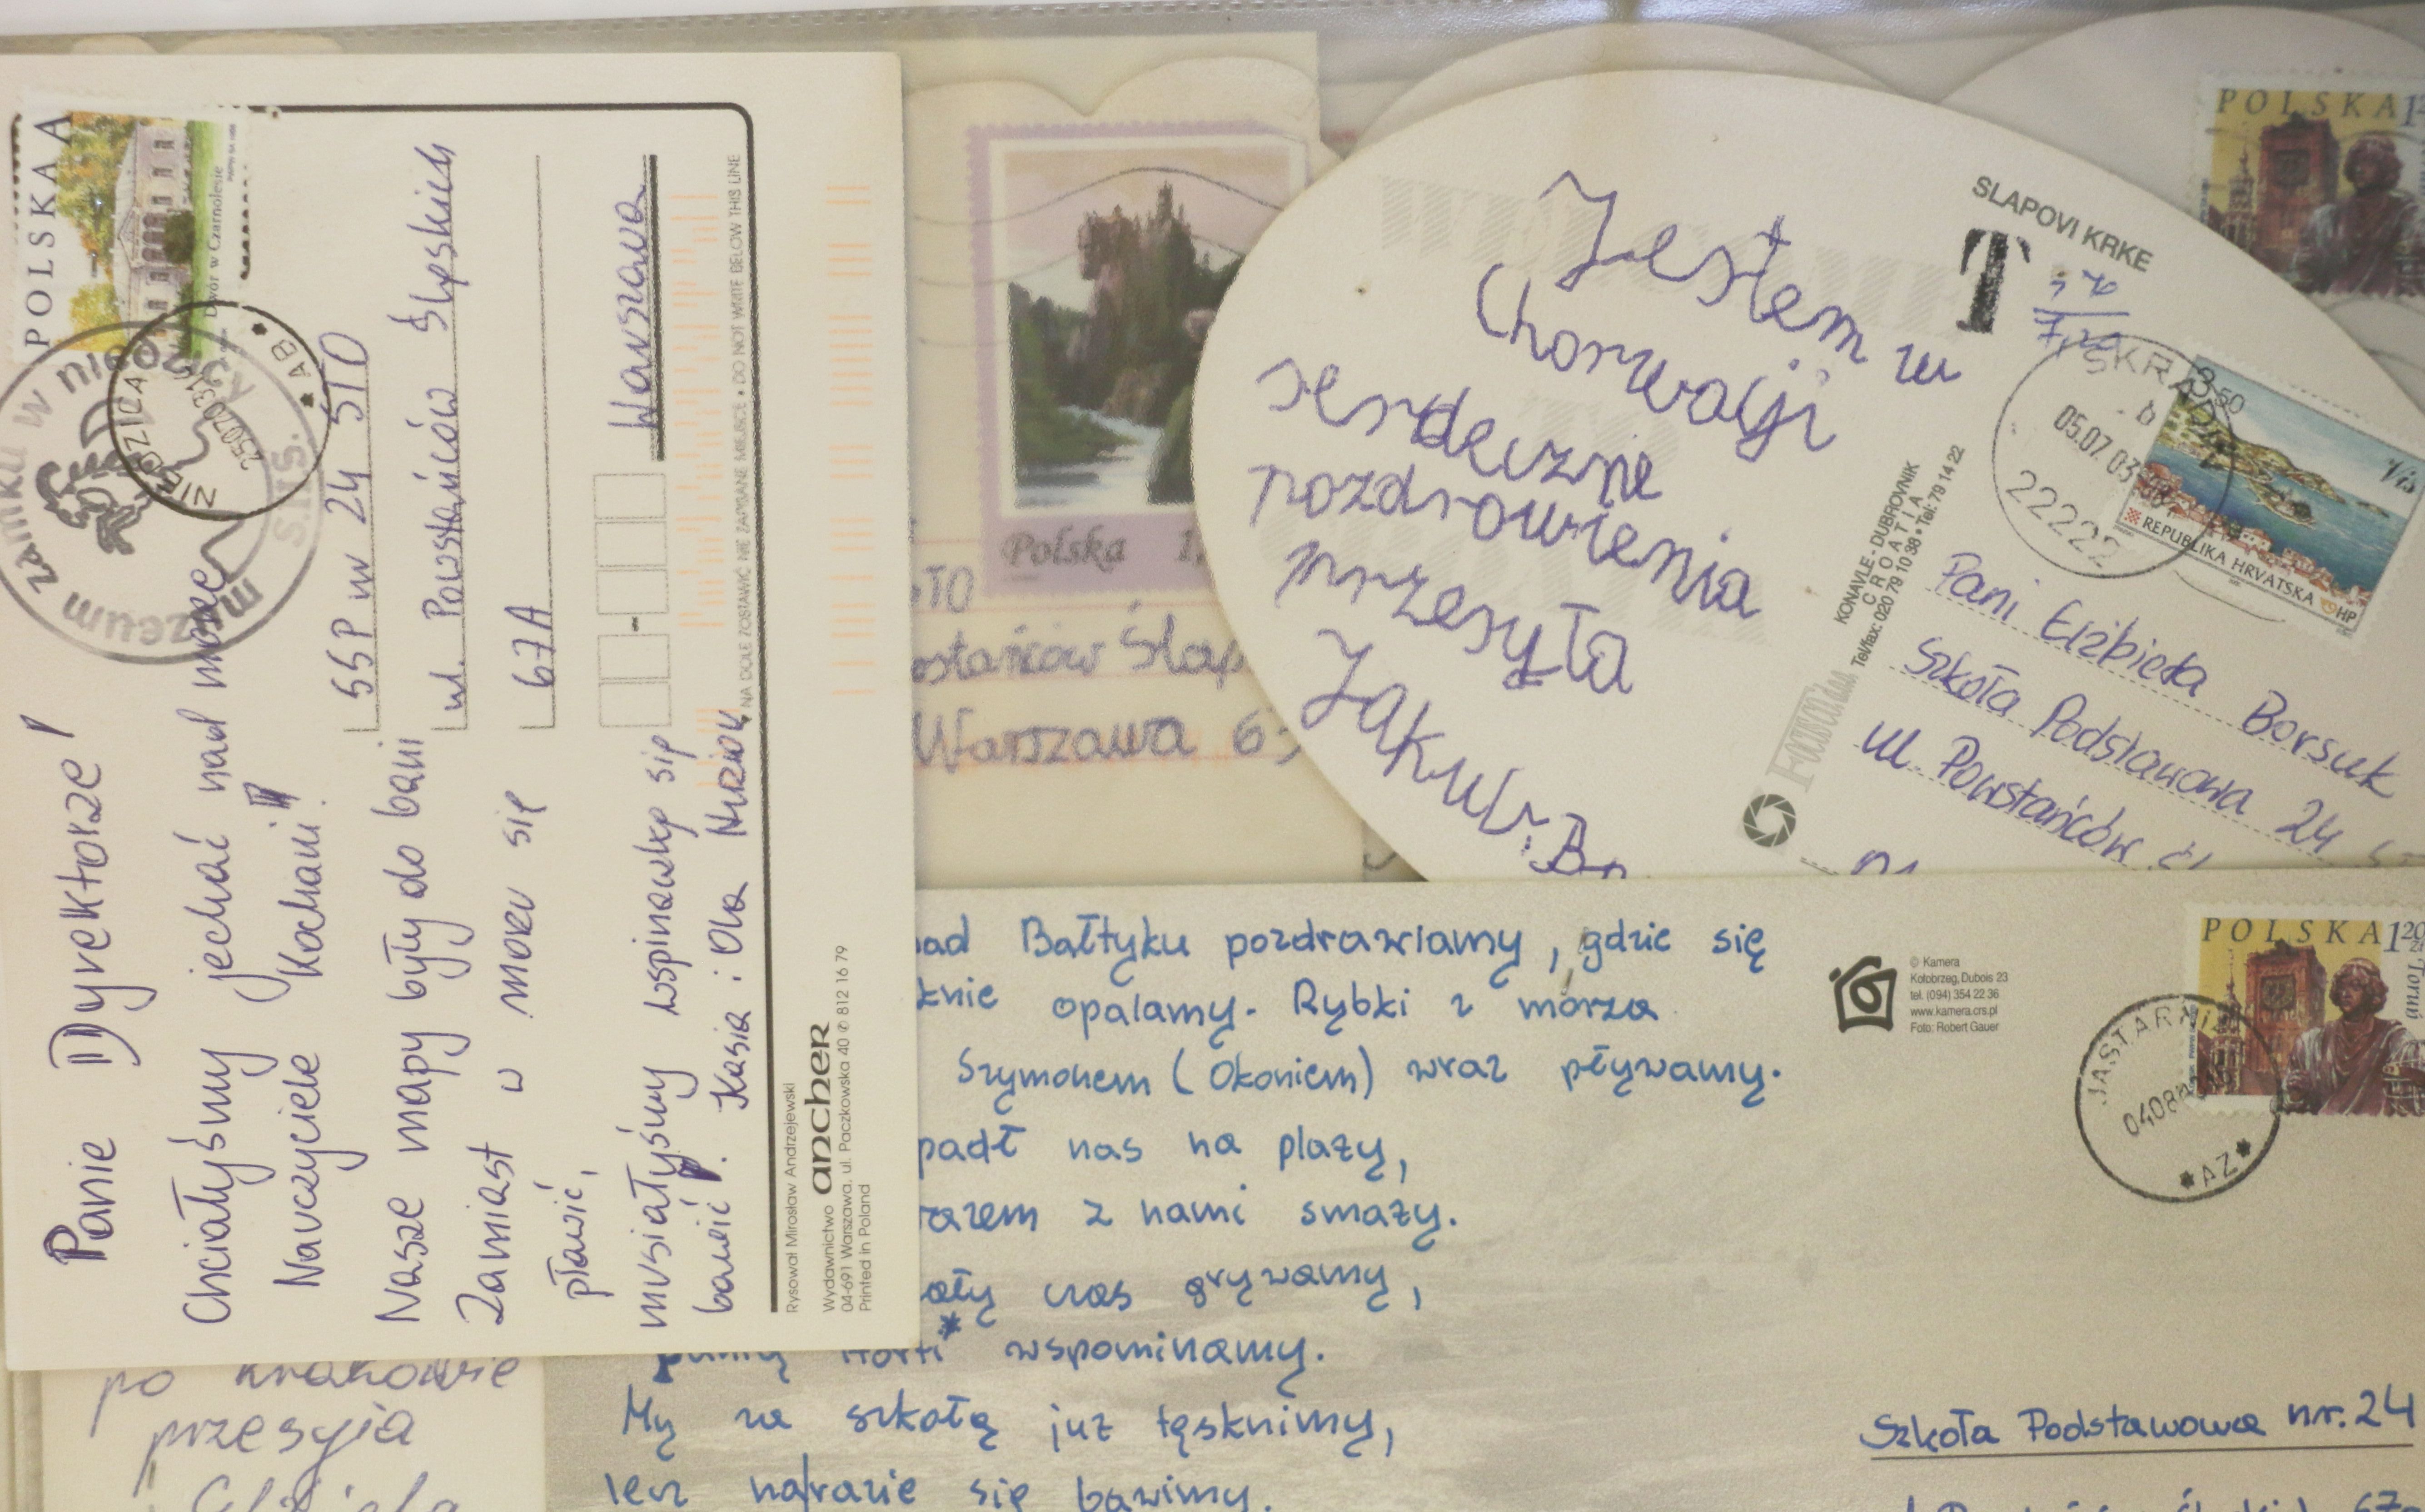 POLSKA A
Dwór w Czarnolesie
muzeum zamku w niedzicy
NIEDZICA
250703
* AB *
Panie Dyrektorze!
Chciałyśmy jechać nad morze
Nauczyciele Kochani!
Nasze mapy były do bani
Zamiast w morzu się
pławić,
musiałyśmy wspinawkę się
bawić. Kasia i Ola
SSP nr 24 STO
ul. Powstańców Śląskich
67A
Warszawa
NA DOLE ZOSTAWIĆ NIE ZAPISANE MIEJSCE • DO NOT WRITE BELOW THIS LINE
Rysował Mirosław Andrzejewski
Wydawnictwo ancher
04-691 Warszawa, ul. Paczkowska 40 ✆ 812 16 79
Printed in Poland
Polska 1,
STO
Warszawa
Jestem w
Chorwacji
serdeczne
pozdrowienia
przesyła
Jakub
SLAPOVI KRKE
T
05.07.03
22222
3,50
Vis
REPUBLIKA HRVATSKA
HP
KONAVLE - DUBROVNIK
CROATIA
Tel/fax: 020 79 10 38 • Tel: 79 14 22
Pani Elżbieta Borsuk
Szkoła Podstawowa 24
ul. Powstańców
POLSKA 1
nad Bałtyku pozdrawiamy, gdzie się
opalamy. Rybki z morza
Szymonem (Okoniem) wraz pływamy.
nas na plaży,
razem z nami smaży.
czas grywamy,
wspominamy.
My za szkołą już tęsknimy,
lecz narazie się bawimy.
© Kamera
Kołobrzeg, Dubois 23
tel. (094) 354 22 36
www.kamera.crs.pl
Foto: Robert Gauer
POLSKA 120 zł
Toruń
JASTARNIA
0408
* AZ *
Szkoła Podstawowa nr. 24
po krakowie
przesyła